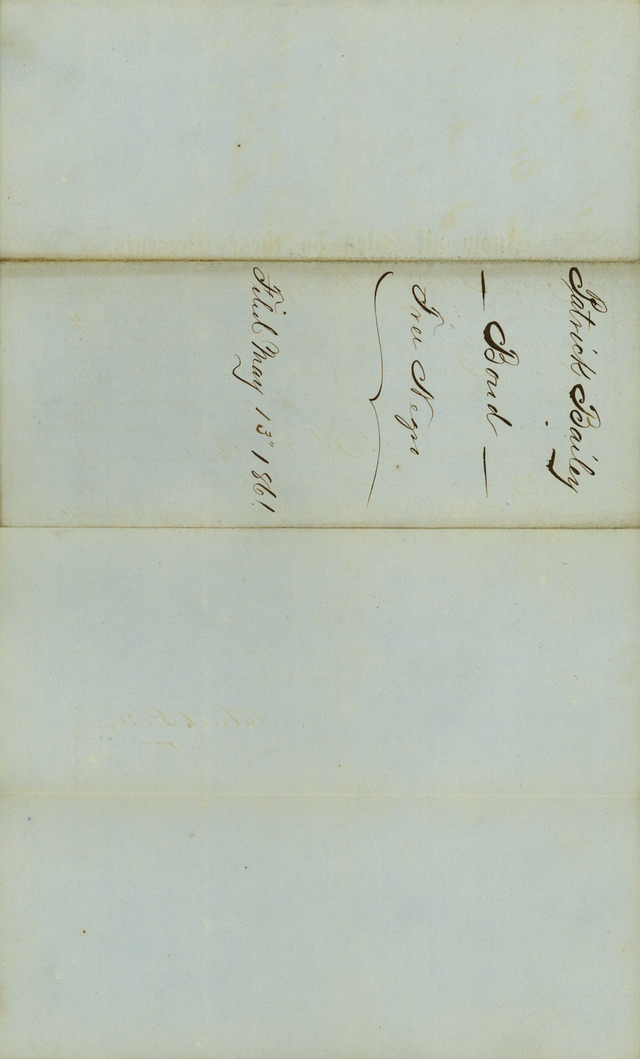 Patrick Bailey
— Bond —
Free Negro
Filed May 13" 1861